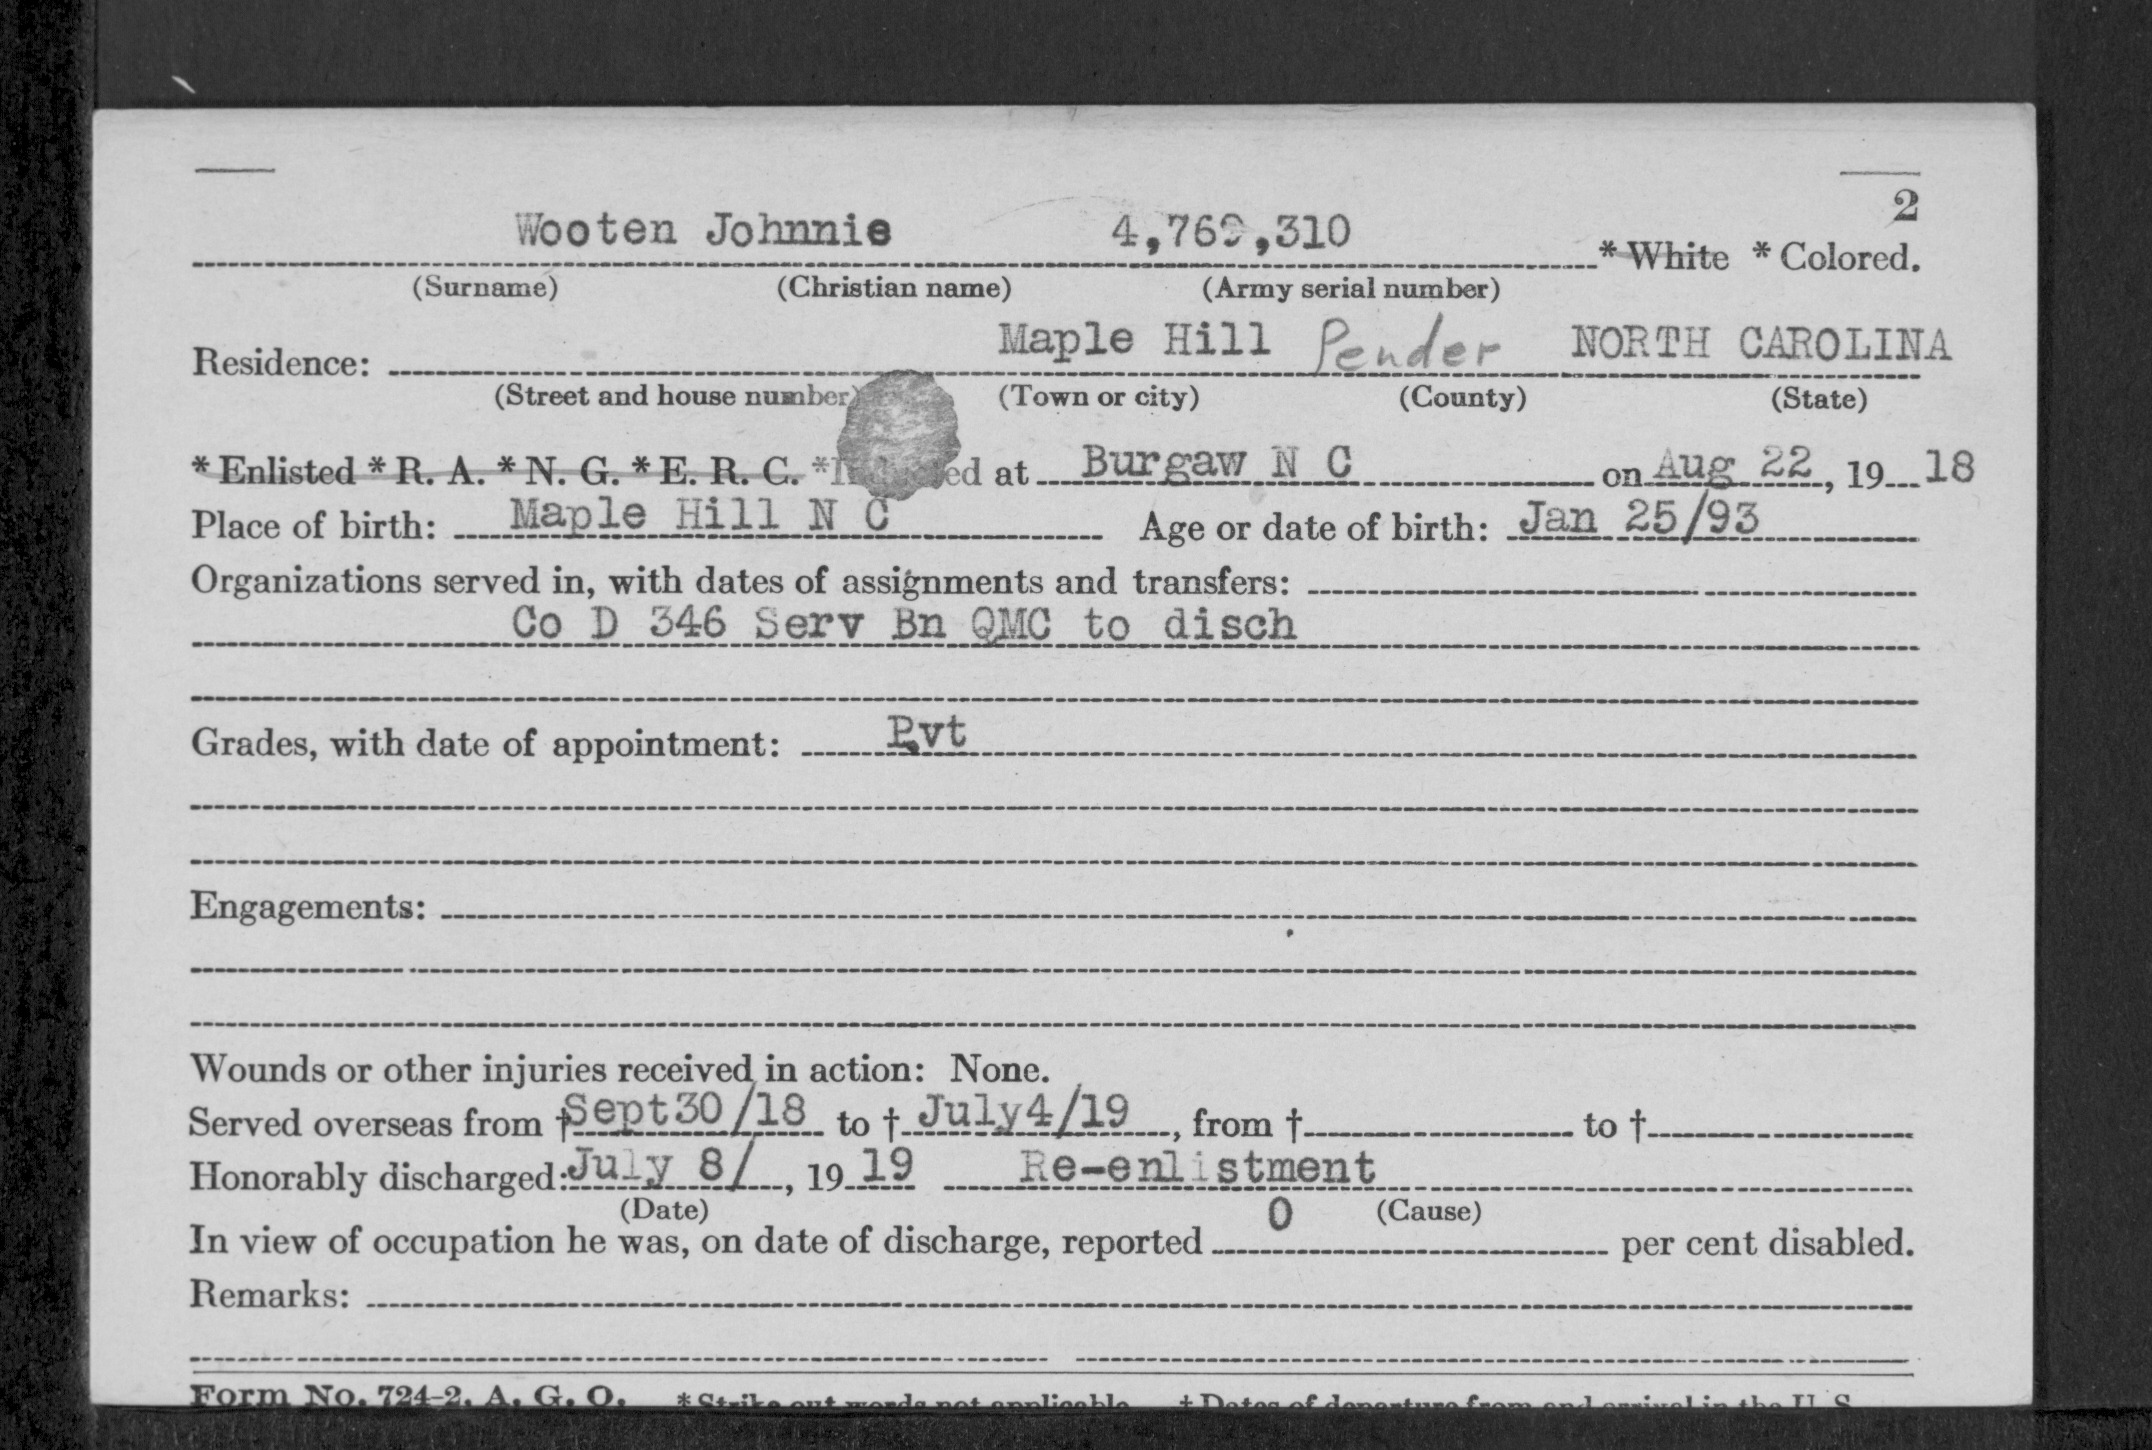 2
Wooten Johnnie 4,769,310 * White * Colored.
(Surname) (Christian name) (Army serial number)
Residence: Maple Hill Pender NORTH CAROLINA
(Street and house number) (Town or city) (County) (State)
* Enlisted * R. A. * N. G. * E. R. C. * at Burgaw N C on Aug 22, 19 18
Place of birth: Maple Hill N C Age or date of birth: Jan 25/93
Organizations served in, with dates of assignments and transfers:
Co D 346 Serv Bn QMC to disch
Grades, with date of appointment: Pvt
Engagements:
Wounds or other injuries received in action: None.
Served overseas from † Sept 30/18 to † July 4/19, from † to †
Honorably discharged: July 8/, 19 19 Re-enlistment
(Date) (Cause)
In view of occupation he was, on date of discharge, reported 0 per cent disabled.
Remarks:
Form No. 724-2, A. G. O. * Strike out words not applicable. † Dates of departure from and arrival in the U. S.